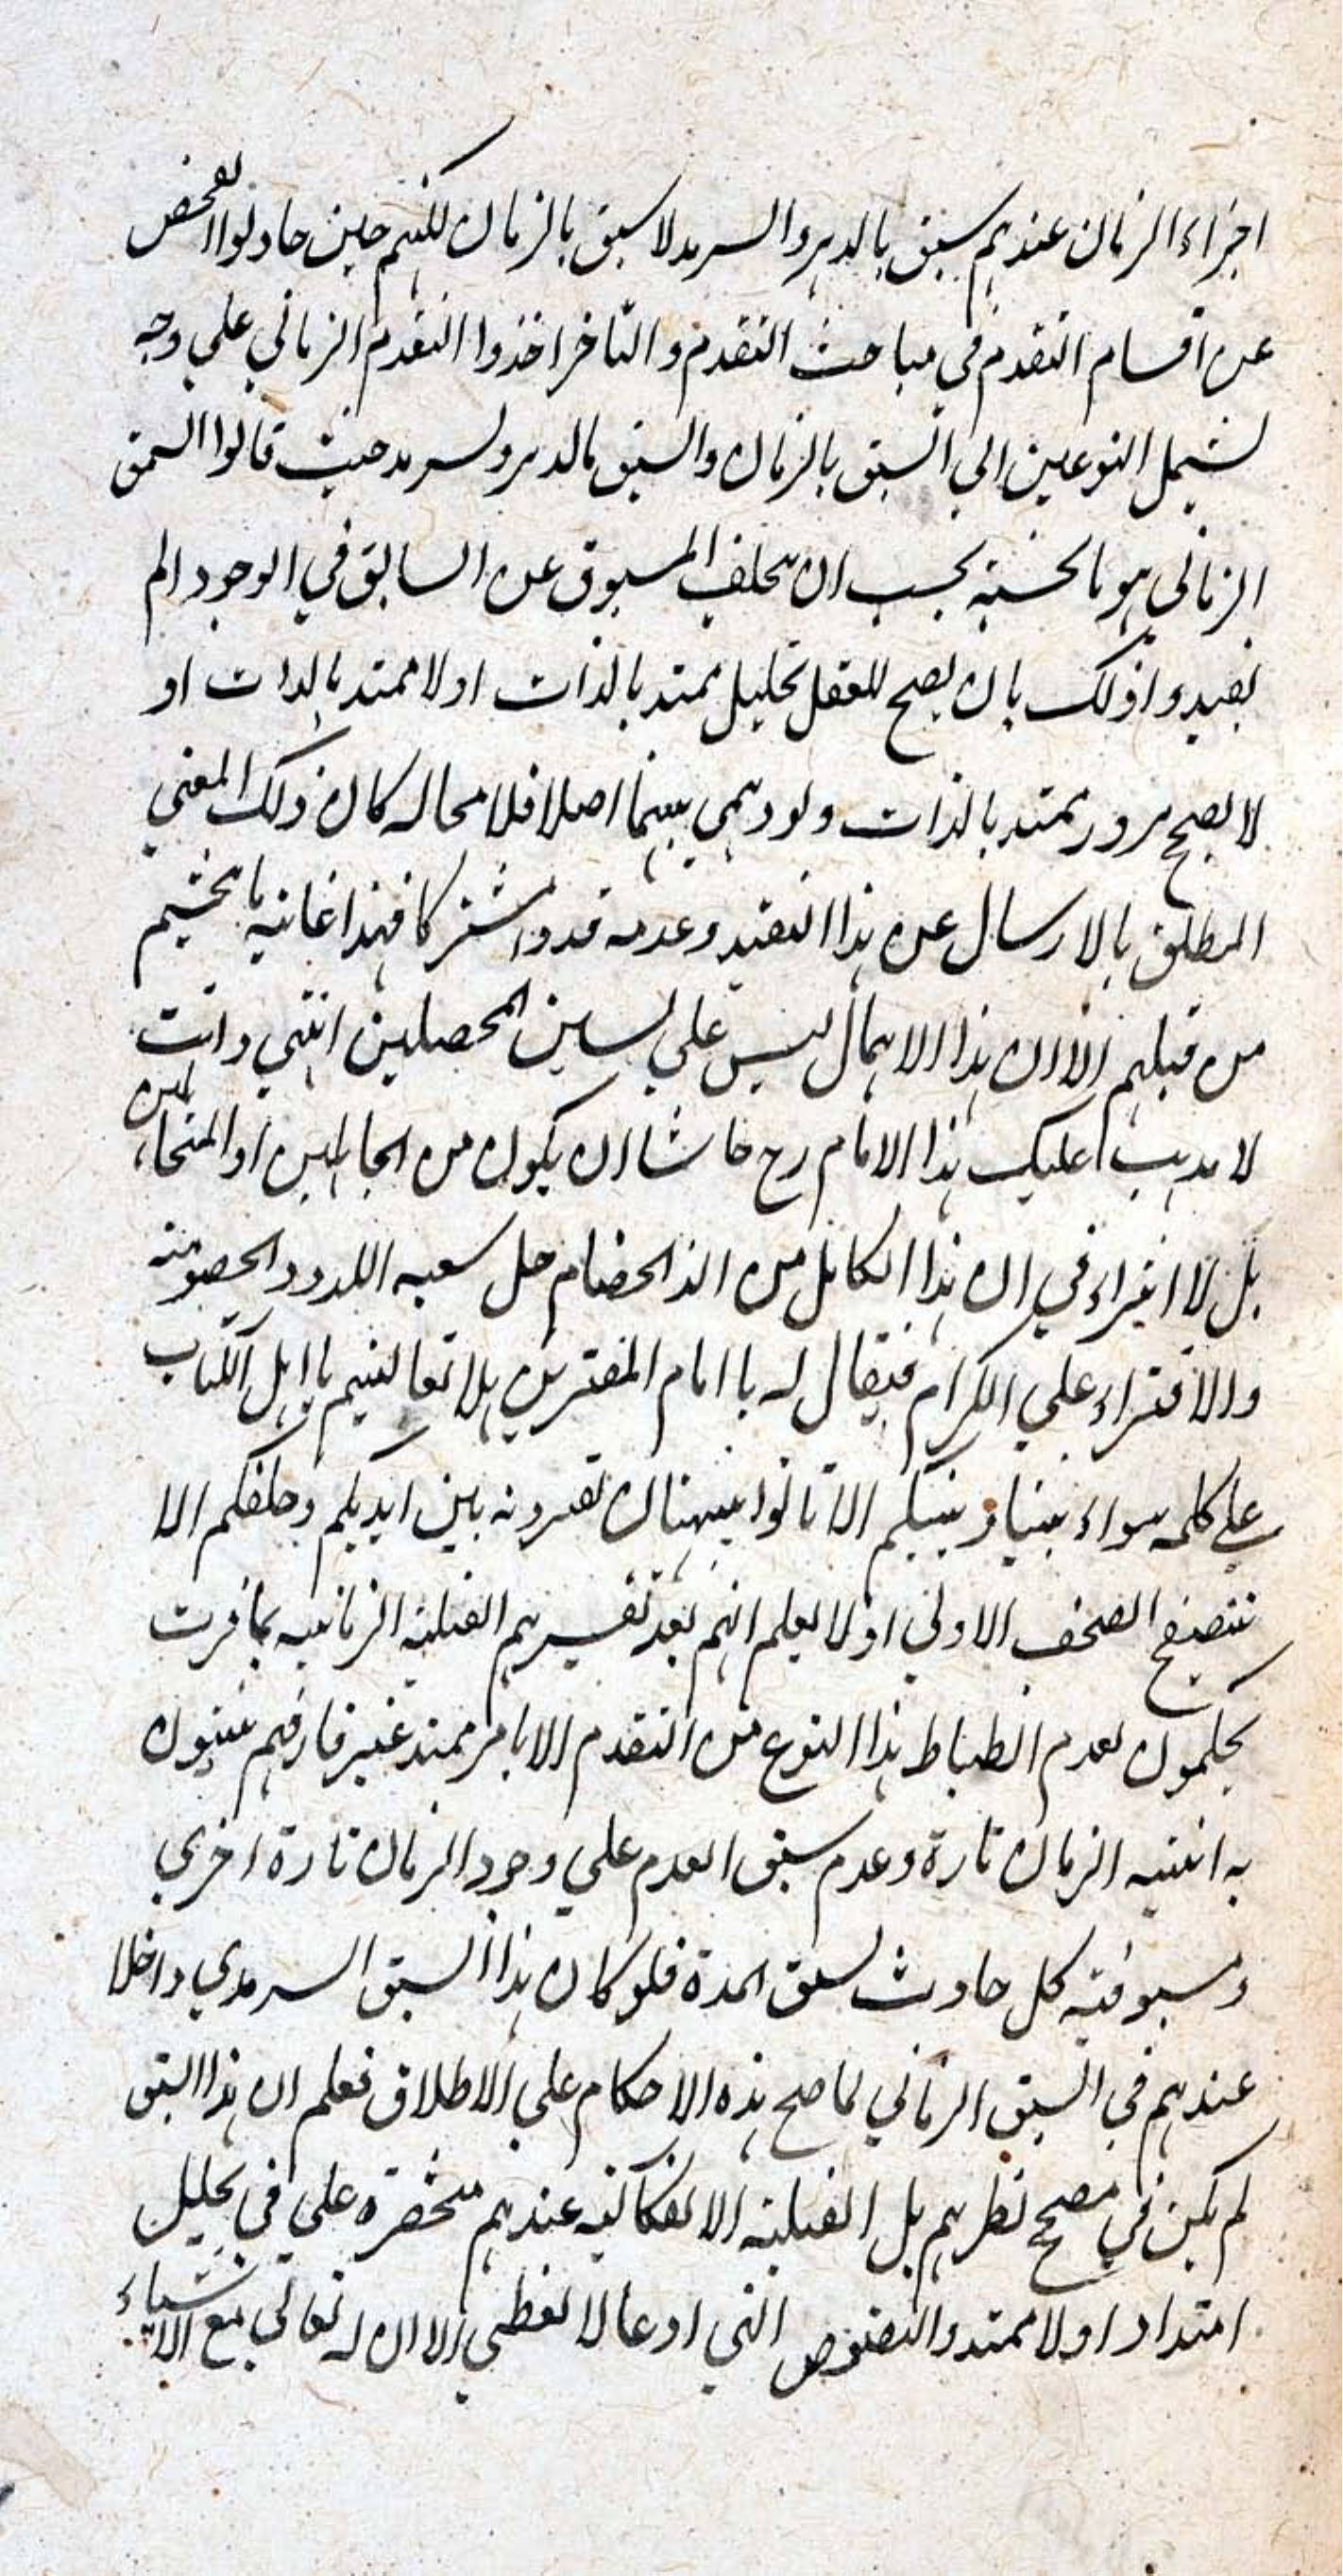 اجزاء الزمان عندهم سبق بالدهر والسرمد لا سبق بالزمان لكنهم حين حاولوا الفحص
عن اقسام التقدم في مباحث التقدم والتاخر اخذوا التقدم الزماني علي وجه
يشمل النوعين اي السبق بالزمان والسبق بالدهر والسرمد حيث قالوا السبق
الزماني هو ما بحسبه يجب ان يتخلف المسبوق عن السابق في الوجود ولم
يقيدوا ذلك بان يصح للعقل تحليل ممتد بالذات او لا ممتد بالذات او
لا يصح مرور ممتد بالذات ولو وهمي بينهما اصلا فلا محاله كان ذلك المعني
المطلق بالارسال عن هذا التقييد وعدمه قدرا مشتركا فهذا غايته ما تجشم
من قبلهم الا ان هذا الاهمال ليس علي لسان المحصلين انتهي وانت
لا يذهب عليك هذا الامام رح حاشا ان يكون من الجاهلين او المتجاهلين
بل لا امتراء في ان هذا الكامل من الد الخصام جل سعيه اللدد والخصومة
والافتراء علي الكرام فيقال له يا امام المفترين هلا تعاليتم يا اهل الكتاب
علي كلمه سواء بيننا وبينكم الا تاتوا ببهتان تفترونه بين ايديكم وخلفكم الا
تتصفح الصحف الاولي او لا يعلم انهم بعد تفسيرهم القبلية الزمانيه بما قررت
يحكمون بعدم انضباط هذا النوع من التقدم الا بامر ممتد غير قار فهم يثبتون
به انيه الزمان تارة وعدم سبق العدم علي وجود الزمان تارة اخري
ومسبوقيه كل حادث بسبق المدة فلو كان هذا السبق السرمدي داخلا
عندهم في السبق الزماني لما صح هذه الاحكام علي الاطلاق فعلم ان هذا السبق
لم يكن في مصحح نظرهم بل القبلية الانفكاكيه عندهم منحصرة علي في تحليل
امتداد او لا ممتد والنصوص التي ادعاها لا تعطي الا ان له تعالي مع الاشياء